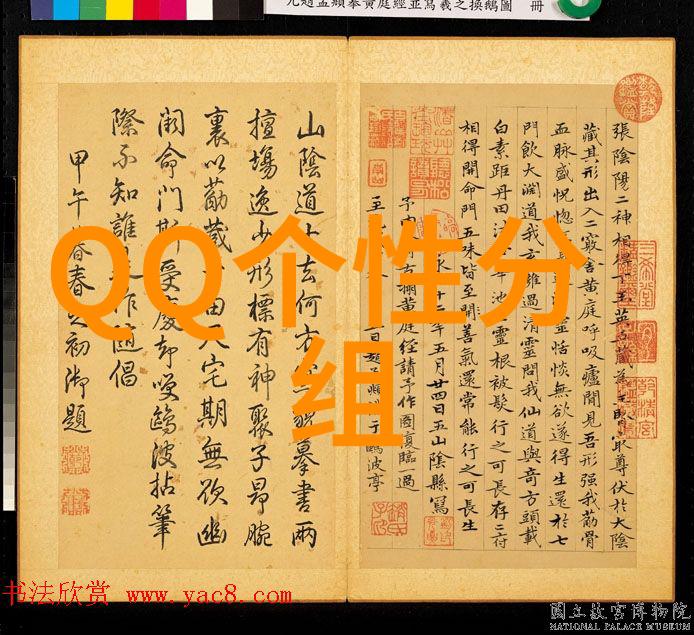 元趙孟頫摹黃庭經並寫羲之換鵝圖 冊
張陰陽二神相得下玉英舌藏
尊伏於太陰
藏其形出入二竅舍黃庭呼吸廬間見吾形強我筋骨
血脉盛恍惚
靈恬惔無欲遂得生還於七
門飲大淵道我玄雍過清靈問我仙道與奇方頭載
白素距丹田
池
靈根被髮行之可長存二府
相得開命門五味皆至開善氣還常能行之可長生
永
十二年五月廿四日五山陰縣寫
黃庭經請予作圖復臨一過
于鷗波亭
山陰道上去何方
摹書兩
擅場逸少形標有神聚子昂腕
裏以筋藏
田天宅期無欲幽
闕命門斯受慶却嘆鷗波拈筆
際不知誰
作隨倡
甲午暮春之初御題
QQ个性分
组
书法欣赏 www.yac8.com
國立故宮博物院
NATIONAL PALACE MUSEUM